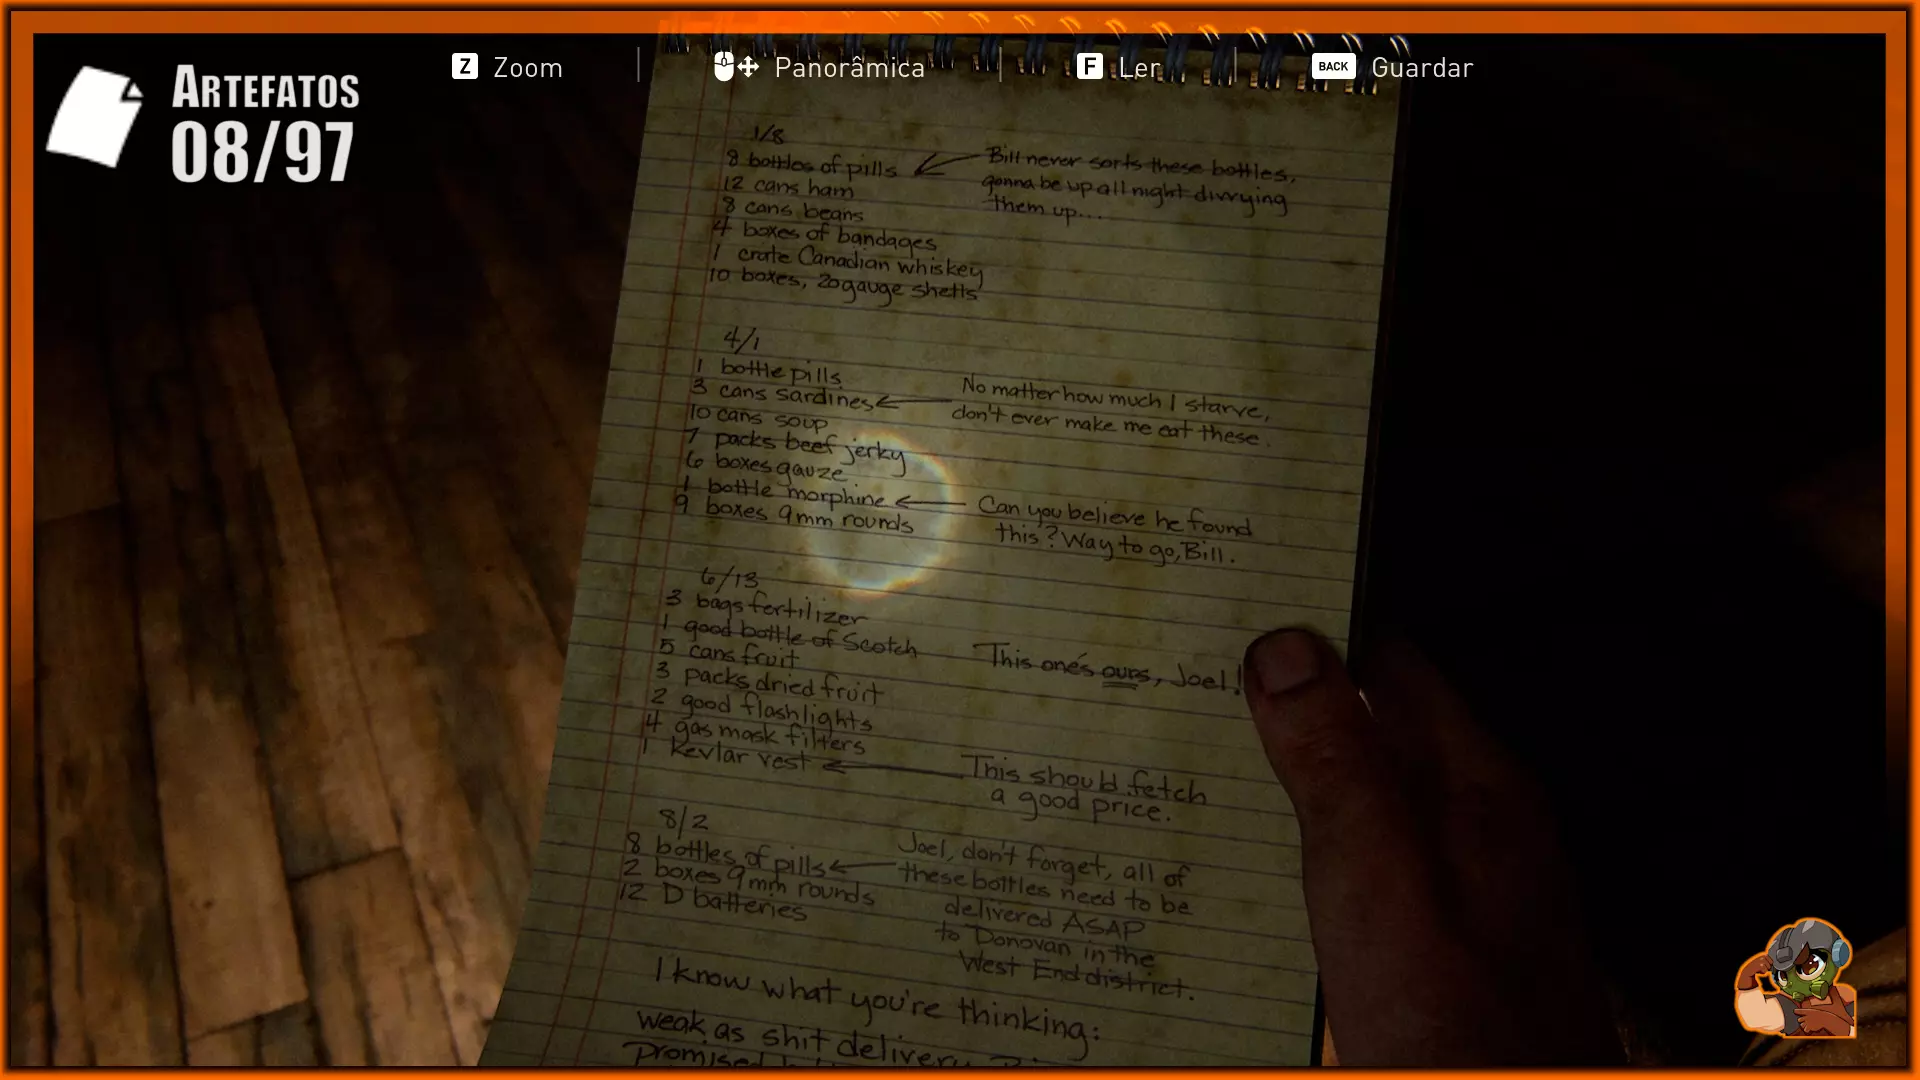 ARTEFATOS
08/97
Z Zoom
Panorâmica
F Ler
BACK Guardar
1/8
8 bottles of pills
12 cans ham
8 cans beans
4 boxes of bandages
1 crate Canadian whiskey
10 boxes, 20 gauge shells
Bill never sorts these bottles,
gonna be up all night divvying
them up...
4/1
1 bottle pills
3 cans sardines
10 cans soup
7 packs beef jerky
6 boxes gauze
1 bottle morphine
9 boxes 9mm rounds
No matter how much I starve,
don't ever make me eat these.
Can you believe he found
this? Way to go, Bill.
6/13
3 bags fertilizer
1 good bottle of Scotch
5 cans fruit
3 packs dried fruit
2 good flashlights
4 gas mask filters
1 Kevlar vest
This one's ours, Joel!
This should fetch
a good price.
8/2
8 bottles of pills
2 boxes 9mm rounds
12 D batteries
Joel, don't forget, all of
these bottles need to be
delivered ASAP
to Donovan in the
West End district.
I know what you're thinking:
weak as shit delivery.
promised